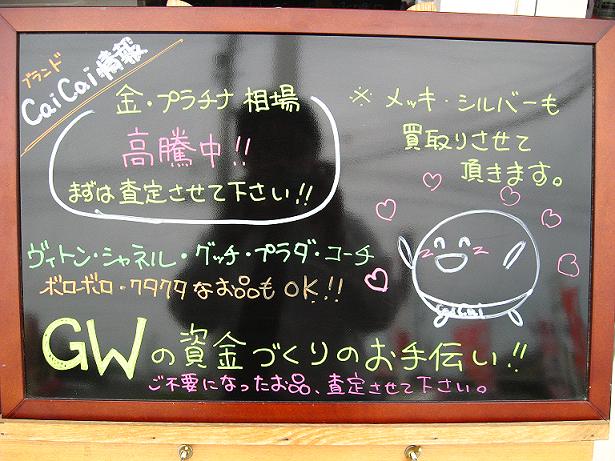 ブランド
CaiCai情報
金・プラチナ 相場
高騰中!!
まずは査定させて下さい!!
※ メッキ・シルバーも
買取りさせて
頂きます。
ヴィトン・シャネル・グッチ・プラダ・コーチ
ボロボロ・クタクタなお品もOK!!
CaiCai
GWの資金づくりのお手伝い!!
ご不要になったお品、査定させて下さい。